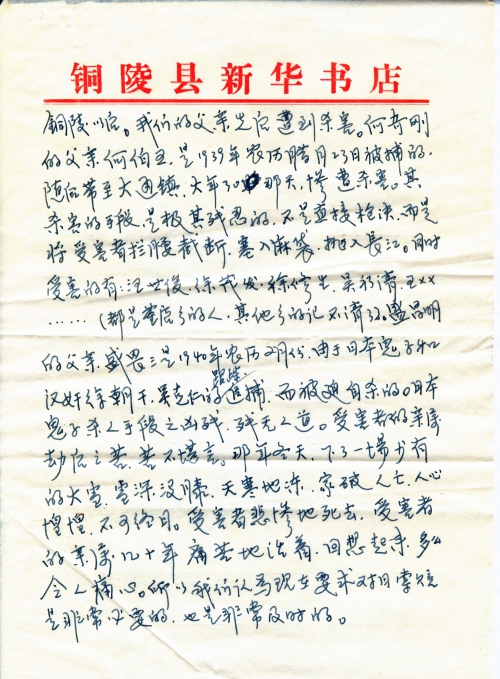 铜陵县新华书店
铜陵以后。我们的父亲先后遭到杀害。何奇刚
的父亲何伯玉,是1939年农历腊月23日被捕的,
随后带至大通镇,大年30那天,惨遭杀害。其
杀害的手段,是极其残忍的,不是直接枪决,而是
将受害者拦腰截断,塞入麻袋,抛入长江。同时
受害的有:汪世俊、徐我发、徐传生、吴礼清、王××
……(都是董店乡的人,其他乡的记不清
的父亲盛畏三是1940年农历2月份,由于日本鬼子和
汉奸徐朝干、吴克仁的跟踪追捕,而被迫自杀的。日本
鬼子杀人手段之凶残,残无人道。受害者的亲属
劫后之苦,苦不堪言。那年冬天,下了一场少有
的大雪,雪深没膝,天寒地冻,家破人亡,人心
惶惶,不可终日。受害者悲惨地死去,受害者
的亲属几十年痛苦地活着,回想起来,多么
令人痛心。所以我们认为现在要求对日索赔
是非常必要的,也是非常及时的。